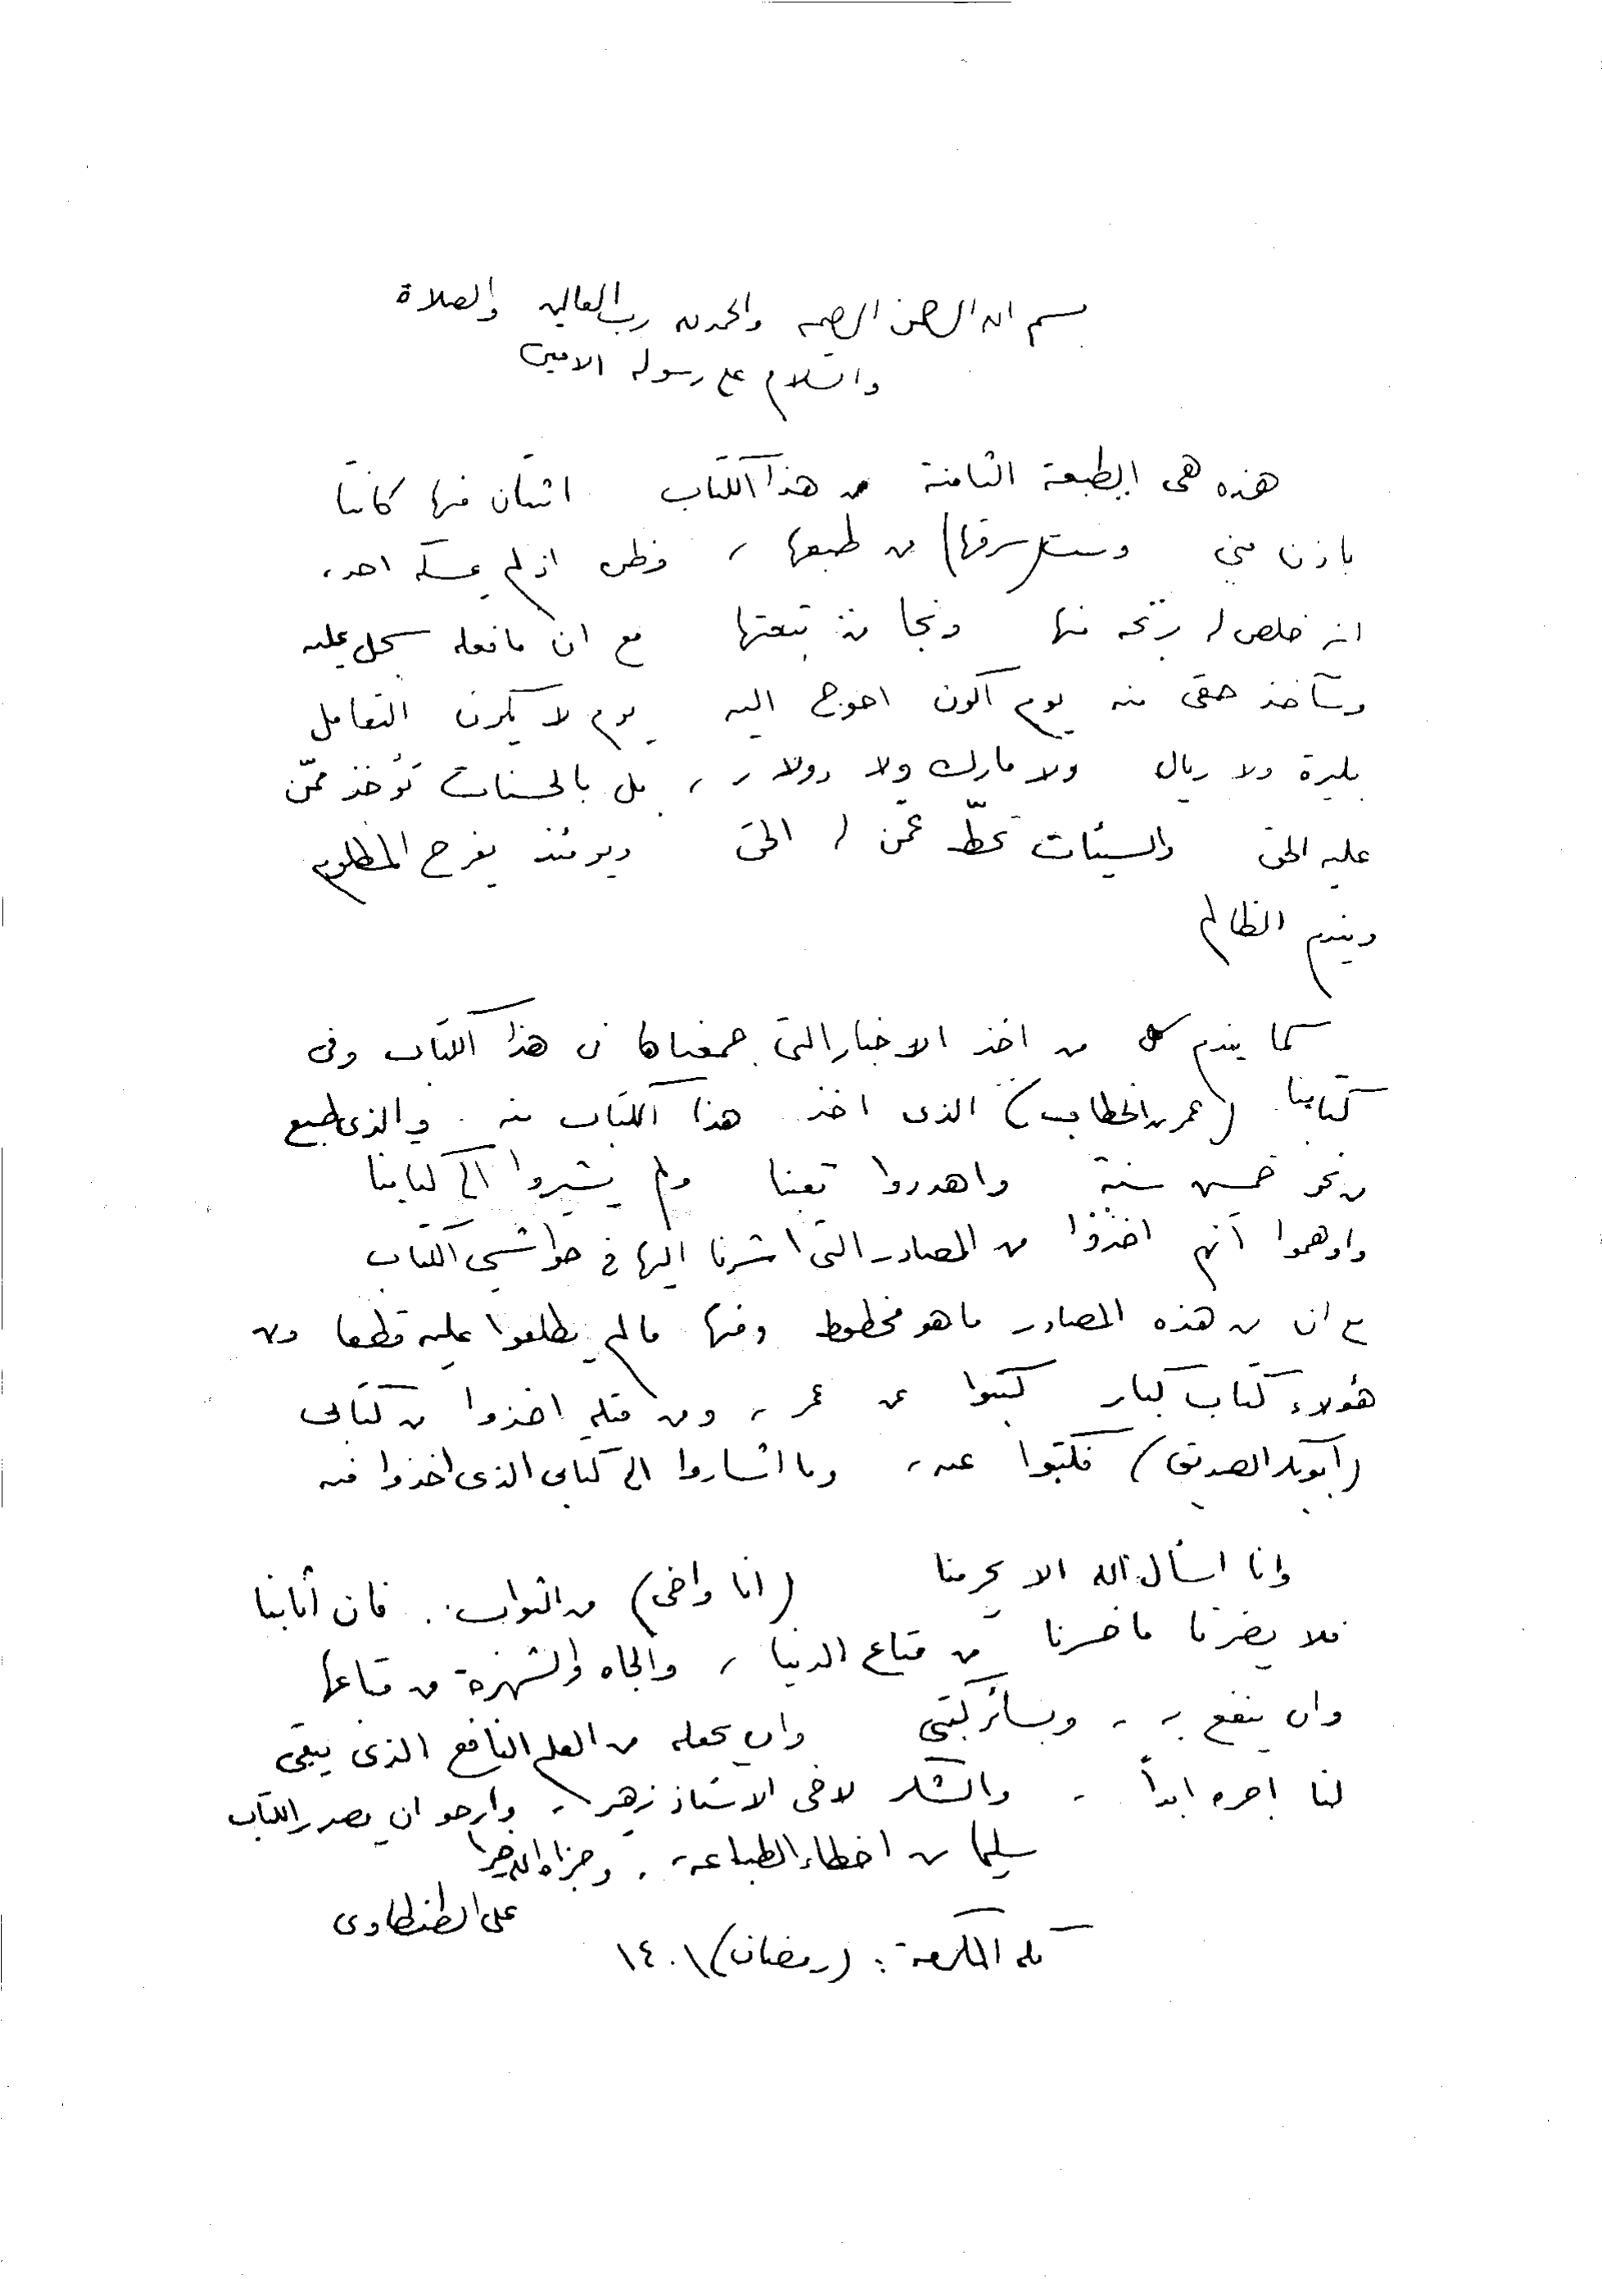 بسم الله الرحمن الرحيم والحمد لله رب العالمين والصلاة
والسلام على رسوله الامين
هذه هى الطبعة الثامنة من هذا الكتاب اثنتان منها كانتا
باذن مني وست (سرقها) من طبعها ، وظن اذ لم يمسكه احد ،
انه خلص له ربحه منها ونجا من تبعتها مع ان ما فعله سجل عليه
وسآخذ حقى منه يوم اكون احوج اليه يوم لا يكون التعامل
بليرة ولا ريال ولا مارك ولا دولار ، بل بالحسنات تؤخذ ممّن
عليه الحق والسيئات تحطّ عمّن له الحق ويومئذ يفرح المظلوم
ويندم الظالم
كما يندم كل من اخذ الاخبار التي جمعناها فى هذا الكتاب وفى
كتابنا (عمر بن الخطاب) الذى اخذ هذا الكتاب منه . والذى طبع
من نحو خمسين سنة واهدروا تعبنا ولم يشيروا الى كتابينا
واوهموا أنهم اخذوا من المصادر التى اشرنا اليها فى حواشي الكتاب
مع ان من هذه المصادر ما هو مخطوط ومنها ما لم يطلعوا عليه قطعا ومن
هؤلاء كتاب كبار كتبوا عن عمر ، ومن قبله اخذوا من كتابى
(ابو بكر الصديق) فكتبوا عنه ، وما اشاروا الى كتابى الذى اخذوا منه
وانا اسأل الله الا يحرمنا (انا واخى) من الثواب . فان أثابنا
فلا يضرنا ما خسرنا من متاع الدنيا ، والجاه والشهرة من متاعها
وان ينفع به ، وبسائر كتبى وان يجعله من العلم النافع الذى يبقى
لنا اجره ابداً ، والشكر لاخى الاستاذ زهير ، وارجو ان يصدر الكتاب
سليما من اخطاء الطباعة ، وجزاه الله خيرا
على الطنطاوى
مكة المكرمة : (رمضان) ١٤٠١